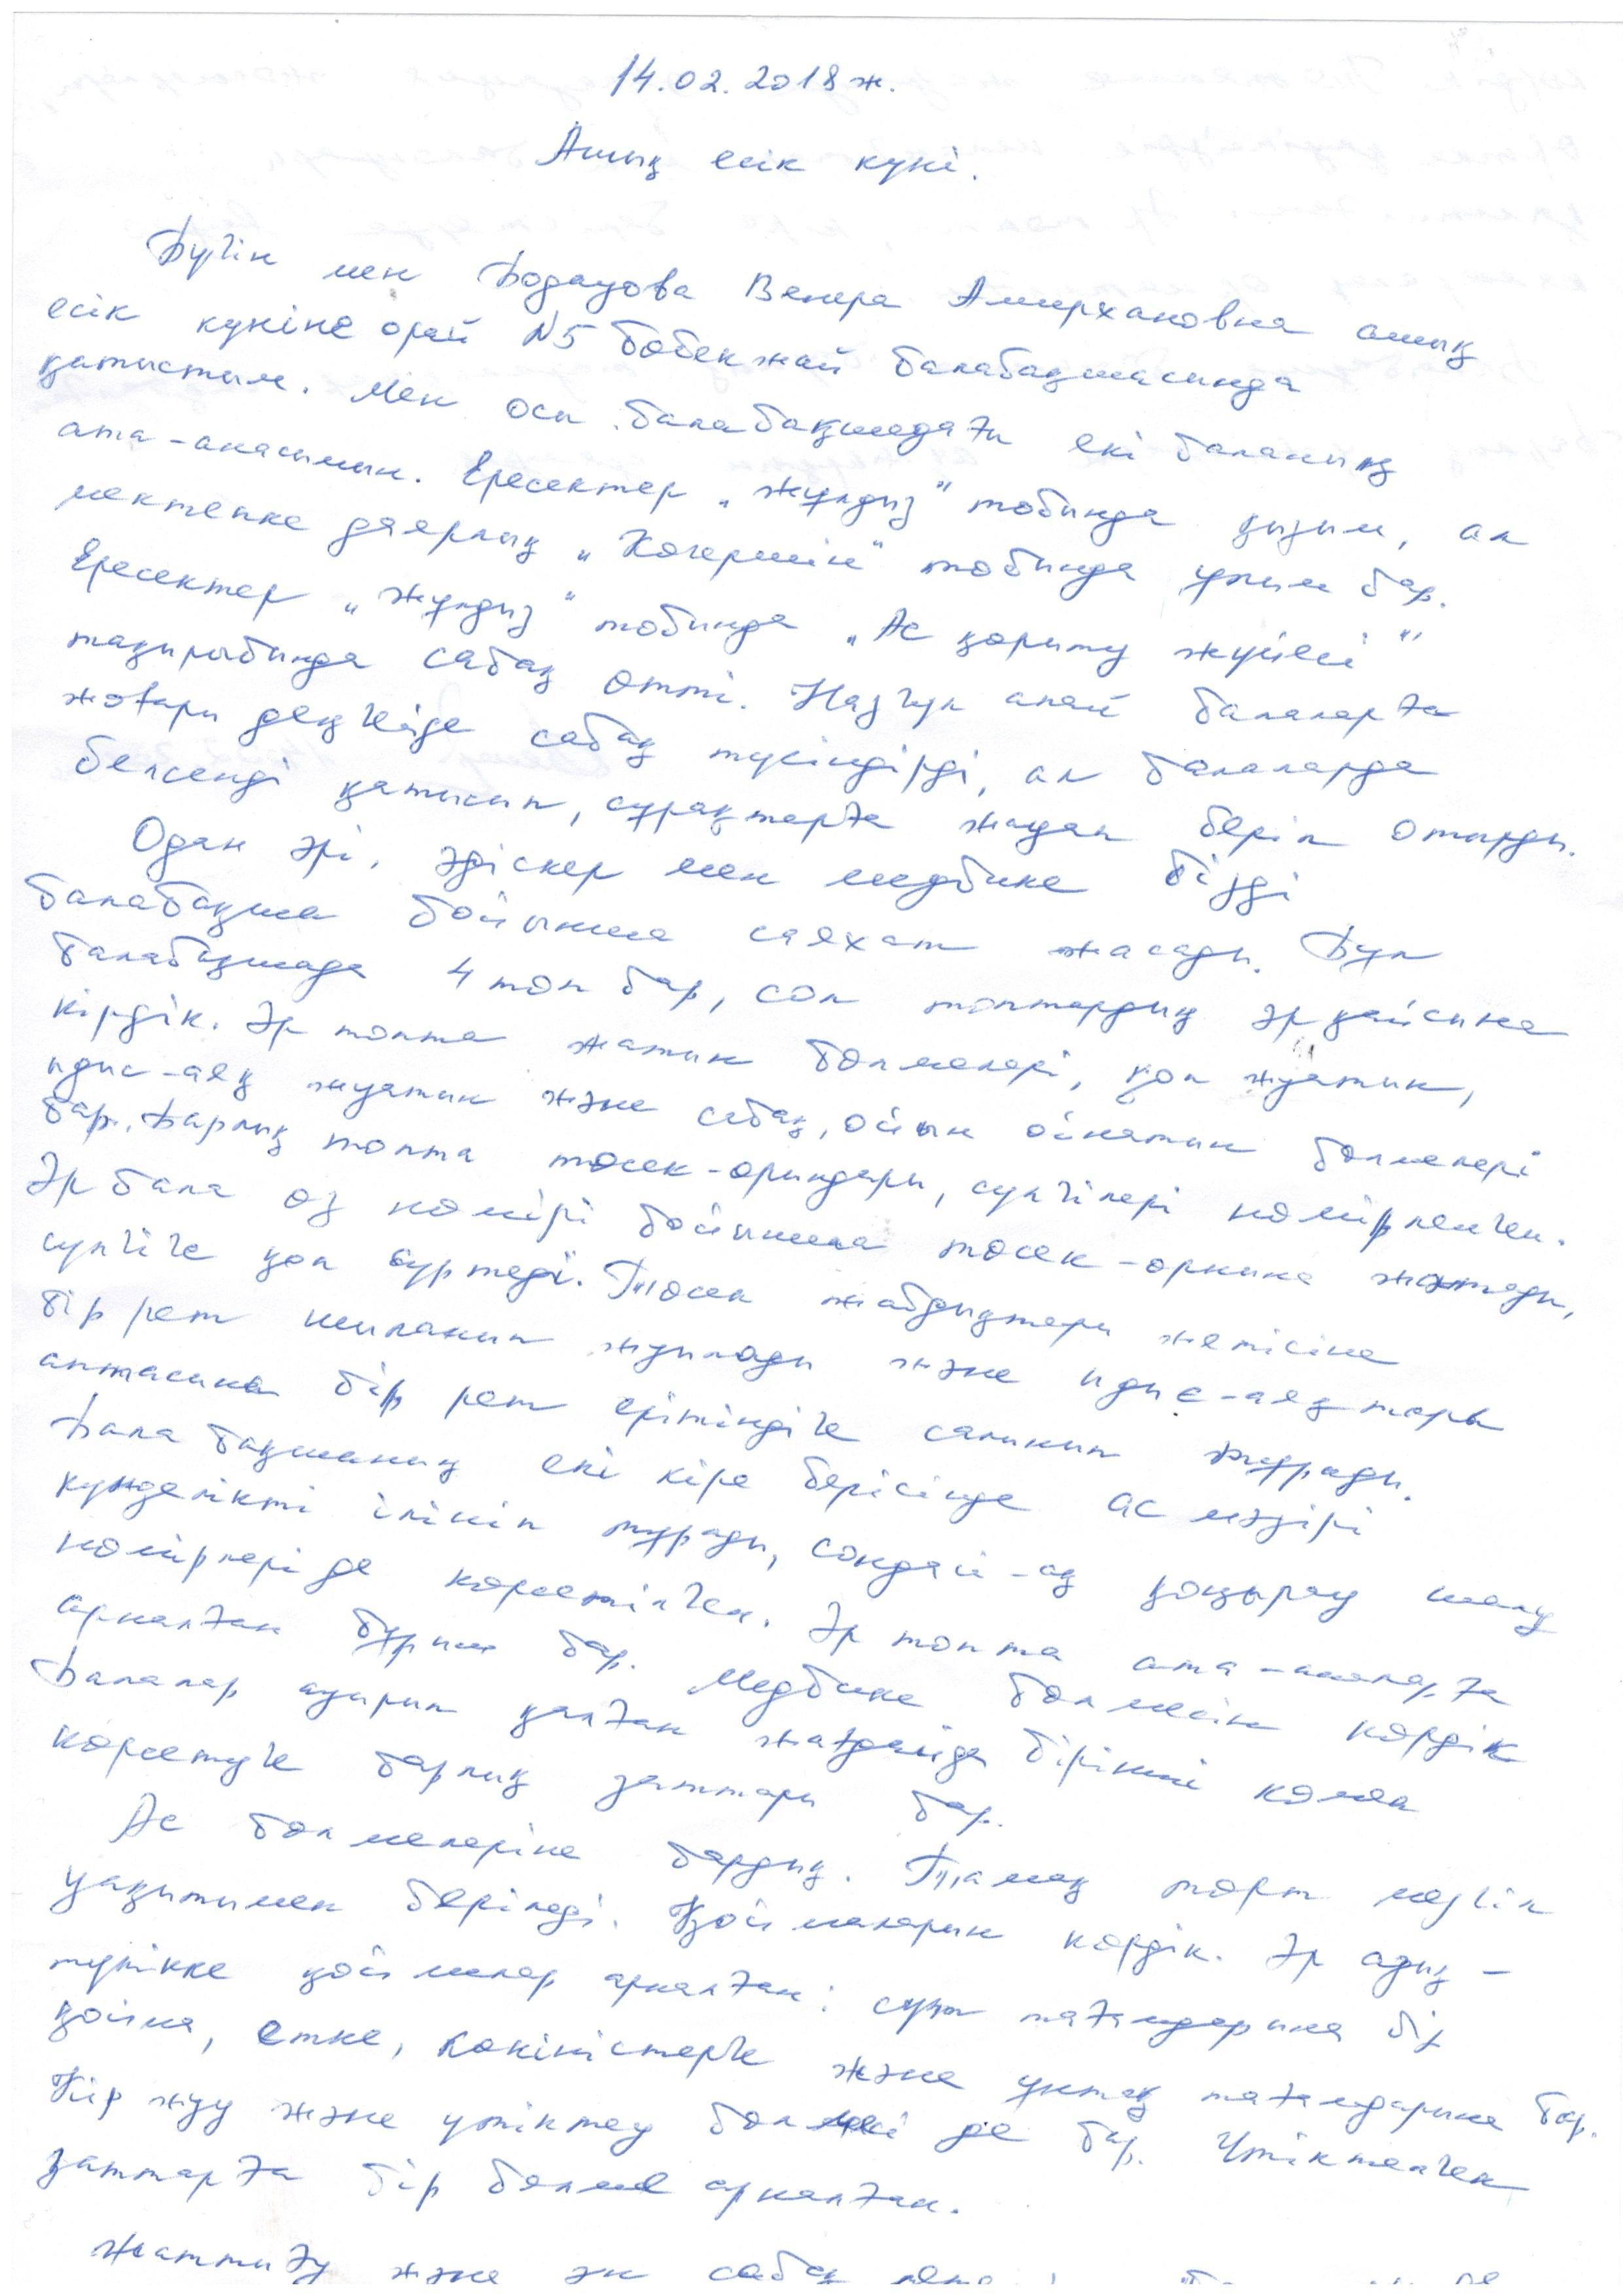 14.02.2018 ж.
Ашық есік күні.
Бүгін мен Бодаузова Венера Амирхановна ашық
есік күніне орай №5 бөбекжай балабақшасында
қатыстым. Мен осы балабақшадағы екі баланың
ата-анасымын. Ересектер „Жұлдыз" тобында қызым, ал
мектепке даярлық „Көгершін" тобында ұлым бар.
Ересектер „Жұлдыз" тобында „Ас қорыту жүйесі"
тақырыбында сабақ өтті. Назгүл апай балаларға
жоғары деңгейде сабақ түсіндірді, ал балаларда
белсенді қатысып, сұрақтарға жауап беріп отырды.
Одан әрі, әдіскер мен медбике бізді
балабақша бойынша саяхат жасады. Бұл
балабақшада 4 топ бар, сол топтардың әрқайсына
кірдік. Әр топта жатын бөлмелері, қол жуатын,
ыдыс-аяқ жуатын және сабақ, ойын ойнатын бөлмелері
бар. Барлық топта төсек-орындары, сүлгілері нөмірленген.
Әр бала өз нөмірі бойынша төсек-орнына жатады,
сүлгіге қол сүртеді. Төсек жабдықтары жетісіне
бір рет ишланып жуылады және ыдыс-аяқтары
аптасына бір рет ерітіндіге салынып тұрады.
Бала бақшаның екі кіре берісінде ас мәзірі
күнделікті ілініп тұрады, сондай-ақ қоңырау шалу
нөмірлері де көрсетілген. Әр топта ата-аналарға
арналған бұрыш бар. Медбике бөлмесін көрдік
Балалар ауырып қалған жағдайда бірінші көмек
көрсетуге барлық заттары бар.
Ас бөлмелеріне бардық. Тамақ төрт мезгіл
уақытымен беріледі. Қоймаларын көрдік. Әр азық-
түлікке қоймалар арналған: сұйық тағамдарына бір
қойма, етке, көкіністерге және ұнтақ тағамдарына бар.
Кір жуу және үтіктеу бөлмесі де бар. Үтіктелген
заттарға бір бөлме арналған.
Жаттығу және ән сабақ